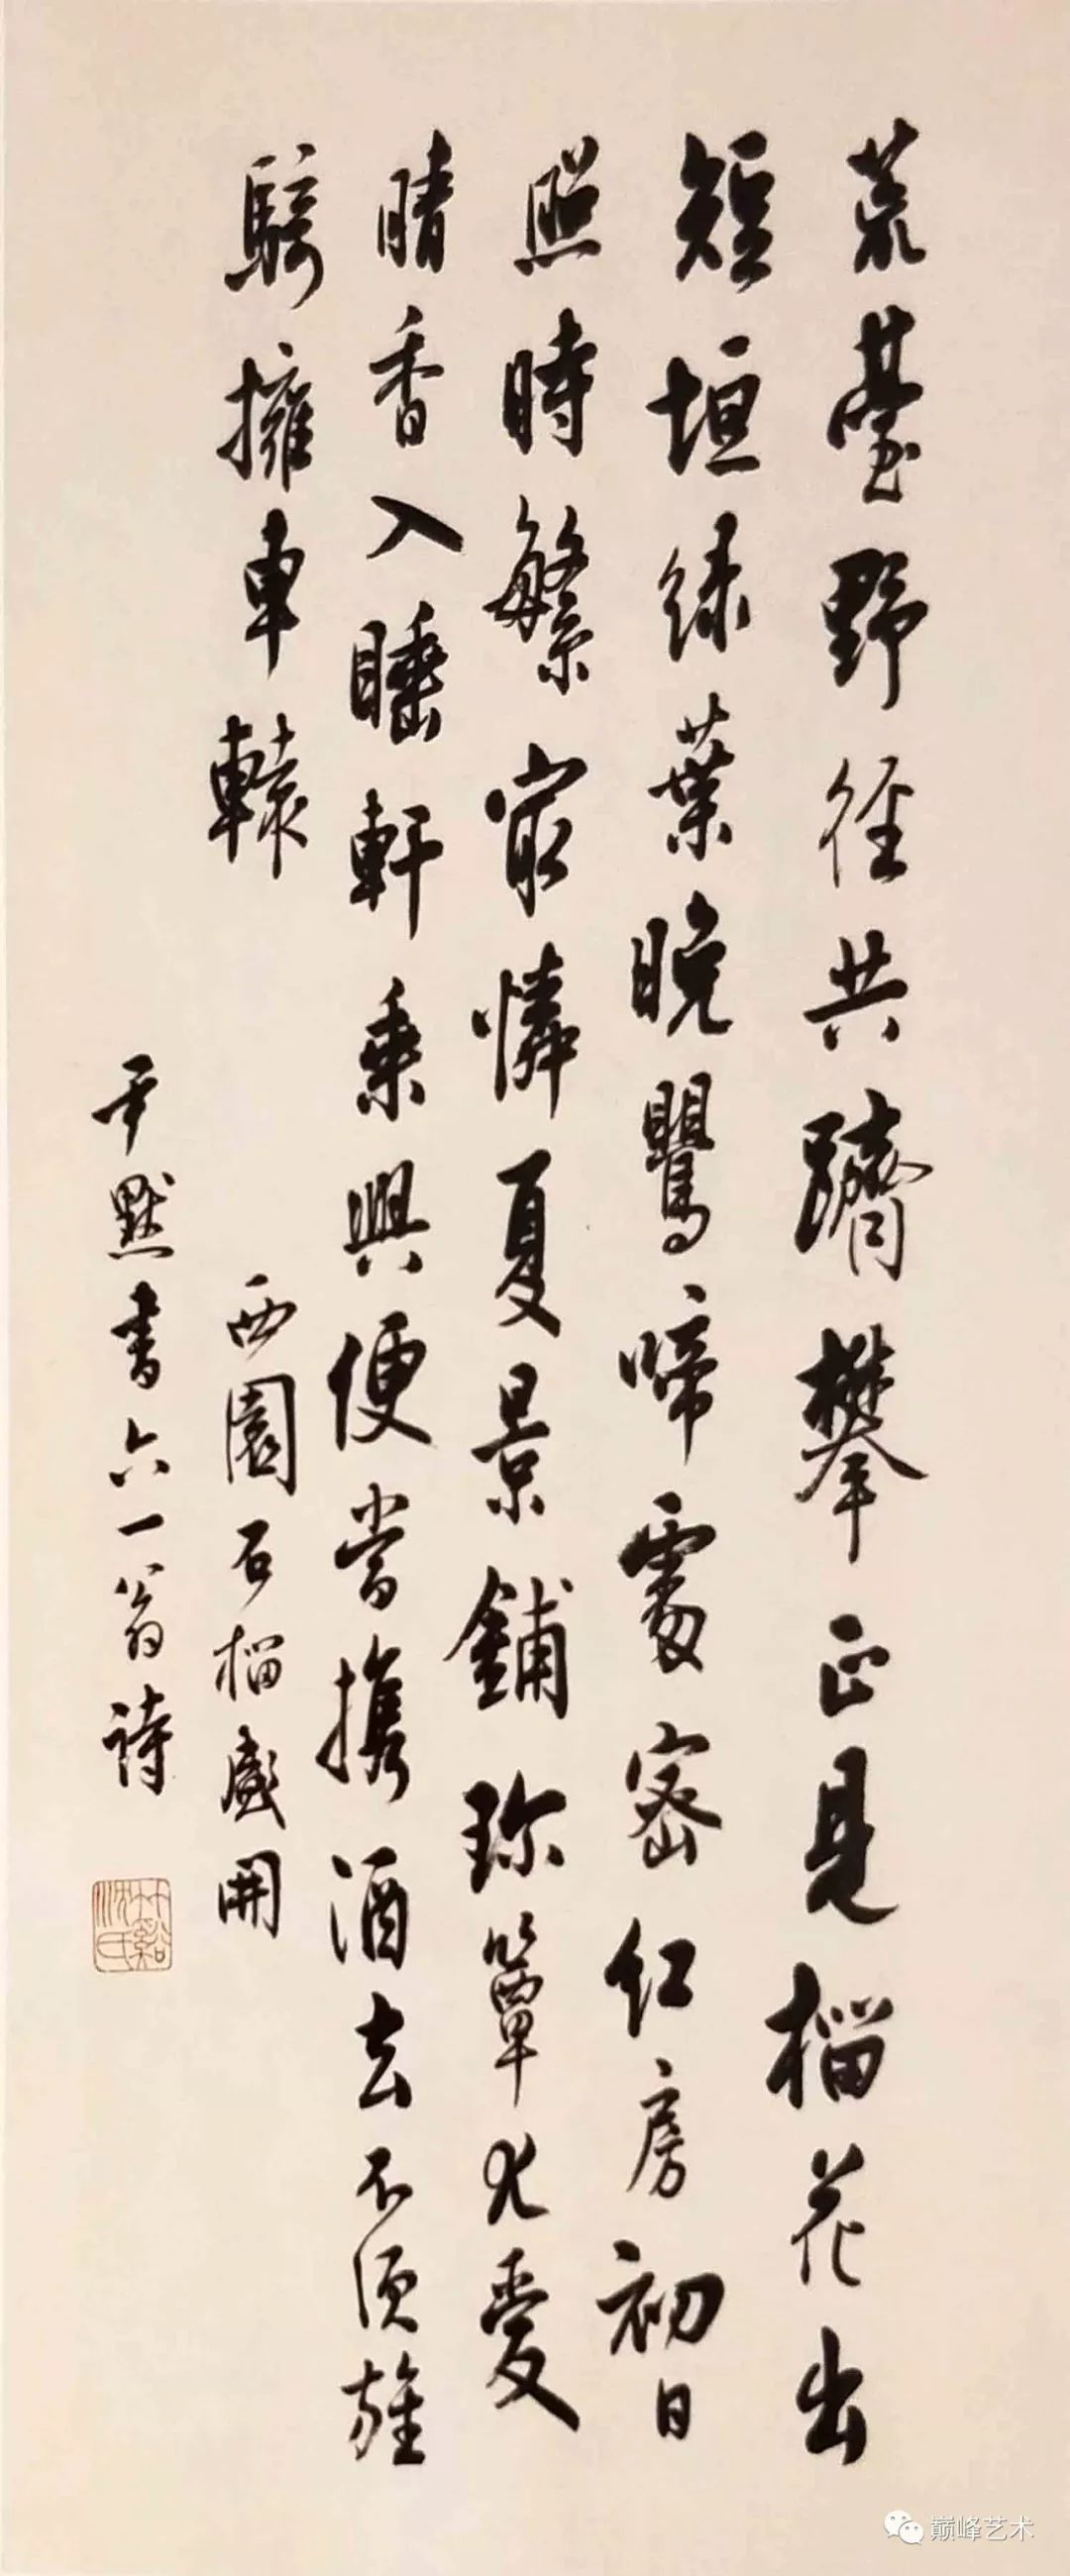 荒臺野徑共躋攀正見榴花出
短垣綠葉晚鶯啼處密紅房初日
照時繁最憐夏景鋪珍簟尤愛
晴香入睡軒乘興便當攜酒去不須旌
騎擁車轅
西園石榴盛開
尹默書六一翁詩
竹谿沈氏
巅峰艺术